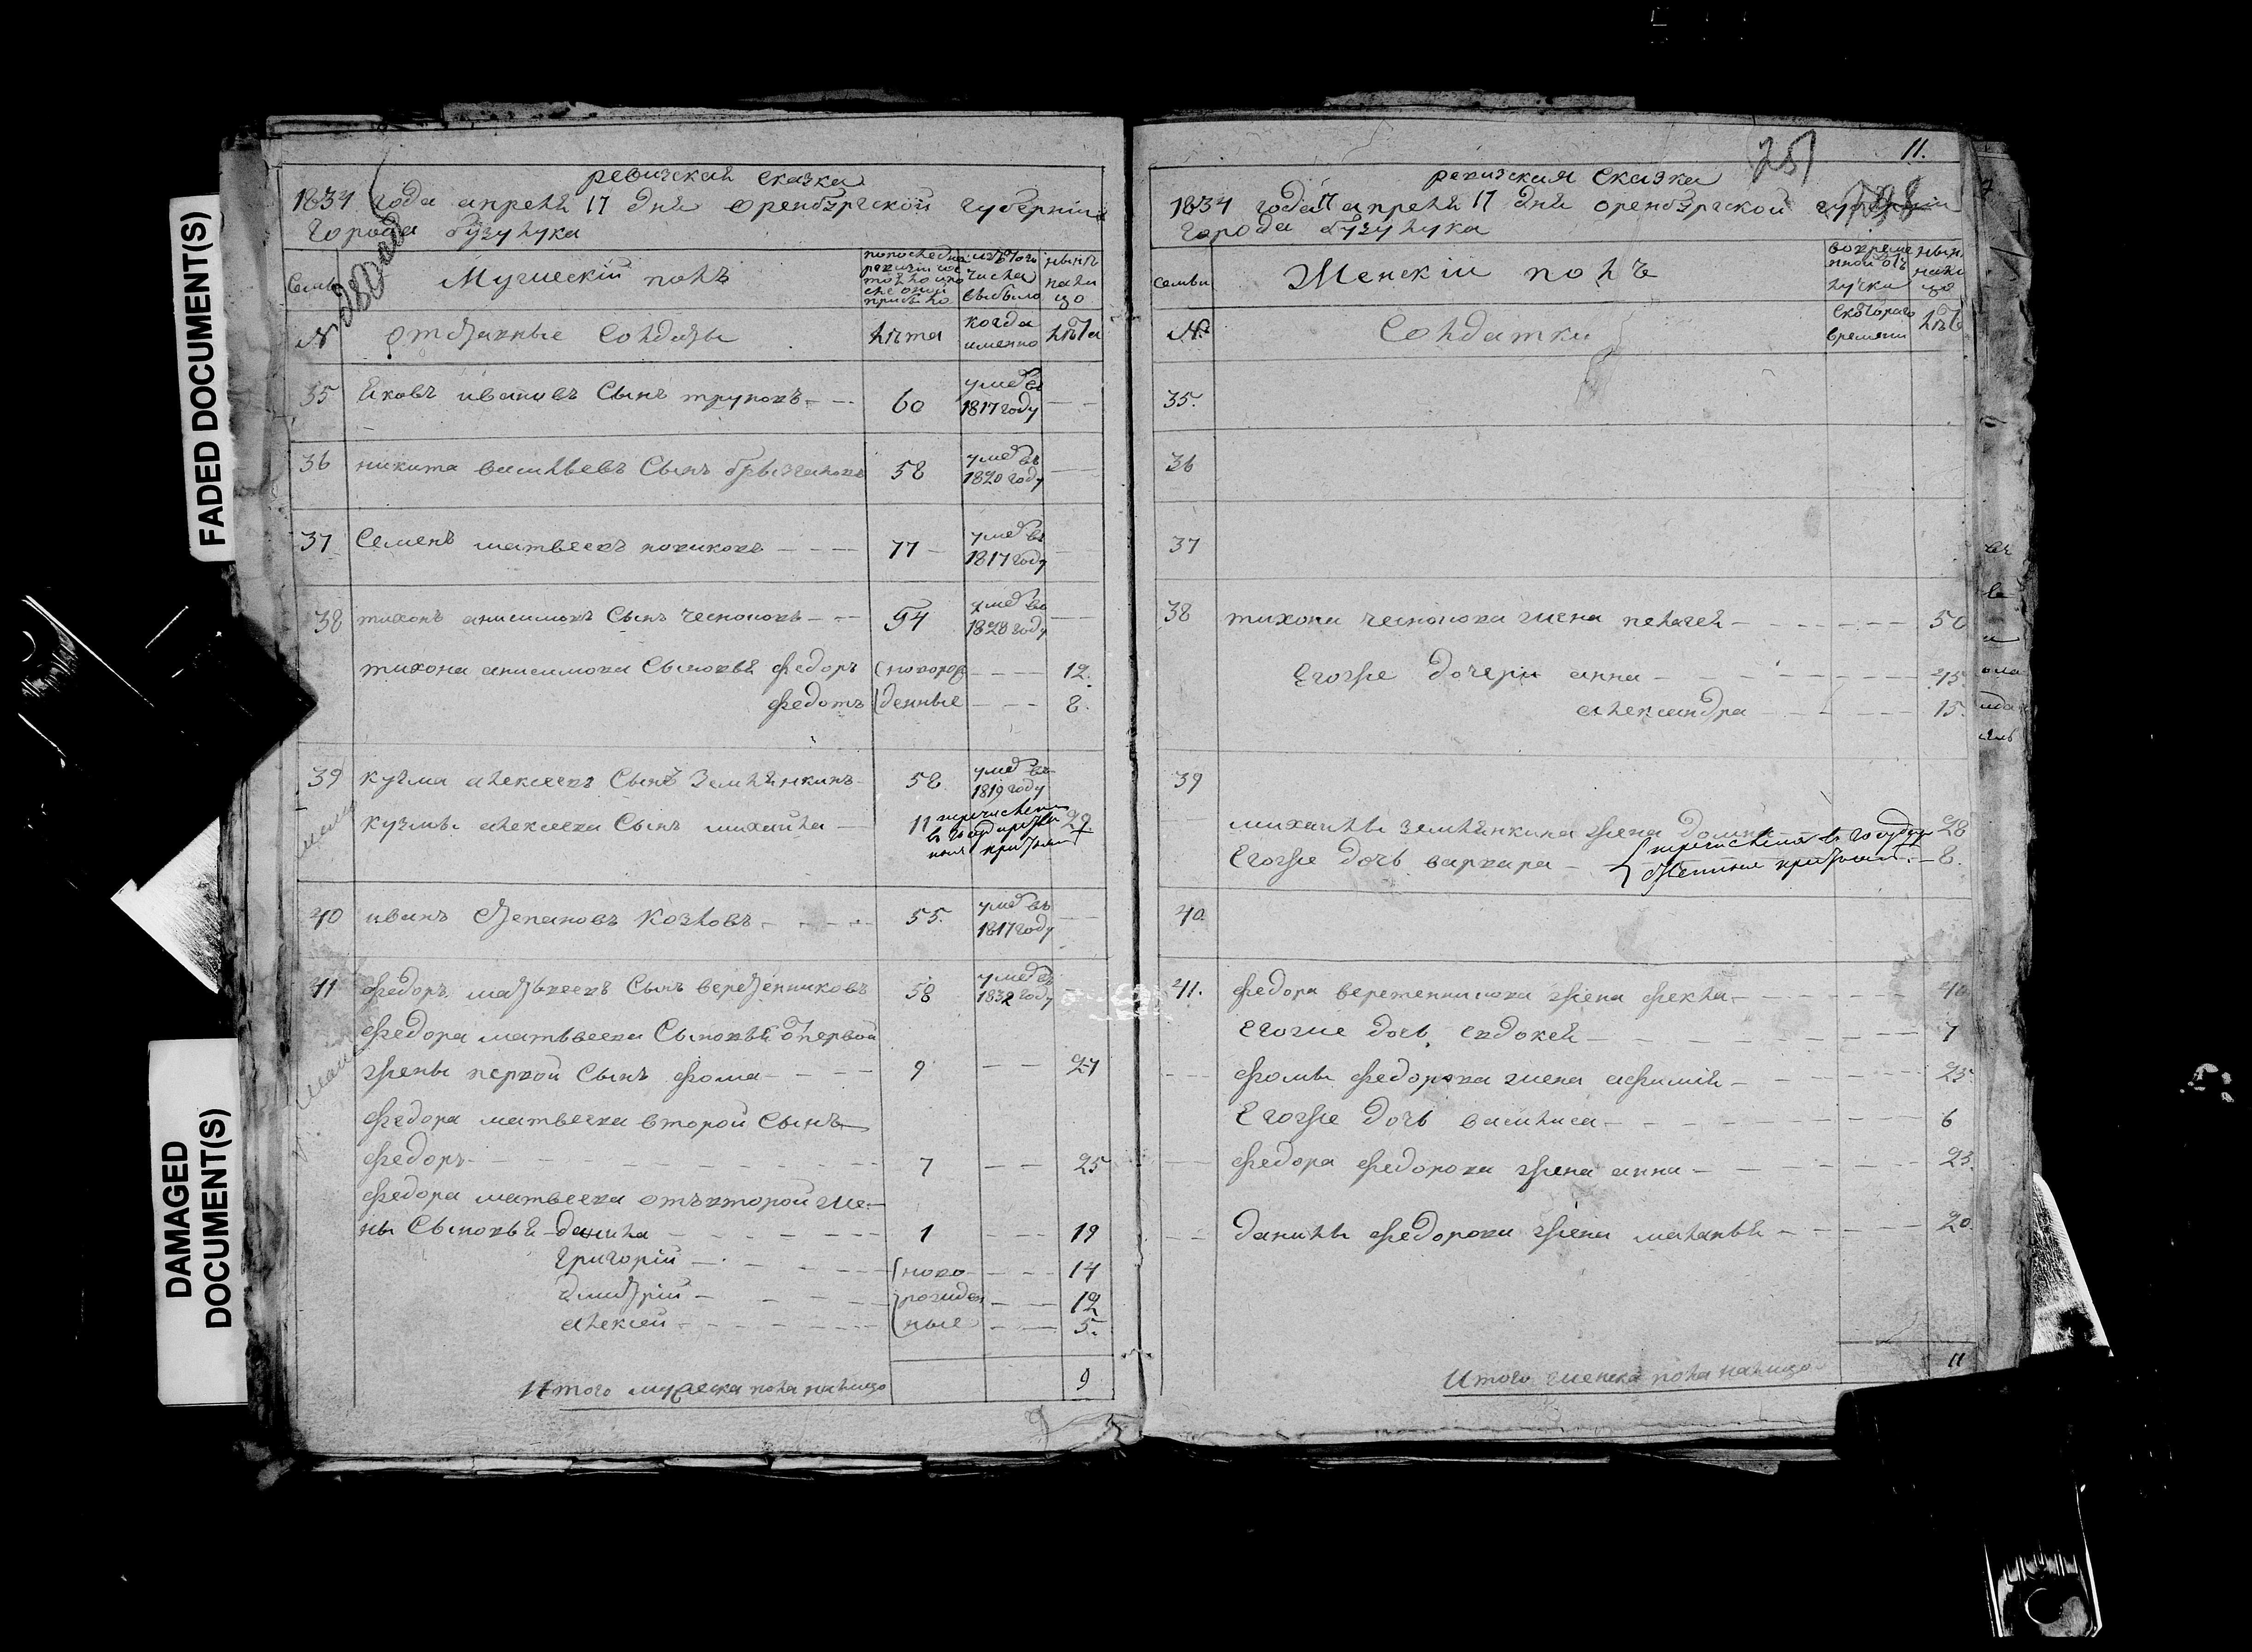 FADED DOCUMENT(S)
DAMAGED
DOCUMENT(S)
ревизская сказка
1834 года апреля 17 дня оренбургской губернии
города бузулука
Семьи
Мужескій полъ
попоследней
ревизии сос
тояло ипо
сле оной
прибыло
изъ того
числа
выбыло
ныне
нали
цо
№
отставные Солдаты
лѣта
когда
именно
лѣта
35 Яковъ ивановъ Сынъ труновъ 60 умер въ
1817 году
36 никита васильевъ Сынъ брызгаловъ 58 умер въ
1820 году
37 Семенъ матвеевъ новиковъ 77 умер въ
1817 году
38 тихонъ анисимовъ Сынъ чесноковъ 54 умер въ
1828 году
тихона анисимова Сыновья федоръ новорож 12.
федотъ денные 8.
39 кузма алексеевъ Сынъ Землянкинъ 58 умер въ
1819 году
кузмы алексеева Сынъ михайла 11 перечислен 29
40 иванъ Степановъ Козловъ 55. умер въ
1817 году
41 федоръ матвеевъ Сынъ веретенниковъ 58 умер въ
1832 году
федора матвеева Сыновья отпервой
жены первой Сынъ фома 9 27
федора матвеева второй Сынъ
федоръ 7 25
федора матвеева отъвторой же-
ны Сыновья данила 1 19
Григорій ново 14
дмитрій рожден 12
алексей ные 5.
Итого мужеска пола налицо 9
9
251
11.
ревизская Сказка
1834 года апреля 17 дня оренбургской губернии
города бузулука
семьи
Женскій полъ
вовреме
нной от
лучки
ныне
нали
цо
№
Солдатки
скотораго
времени
лѣта
35.
36
37
38 тихона чеснокова жена пелагея 50
Егожъ дочери анна
александра 15.
39
михайлы землянкина жена домна 28
Егоже дочь варвара перечислены в государ 8.
40.
41. федора веретенникова жена фекла 40
Егоже дочь евдокея 7
фомы федорова жена афимія 25
Егоже дочь василиса 6
федора федорова жена анна 23.
данилы федорова жена маланья 20.
Итого женска пола налицо 11